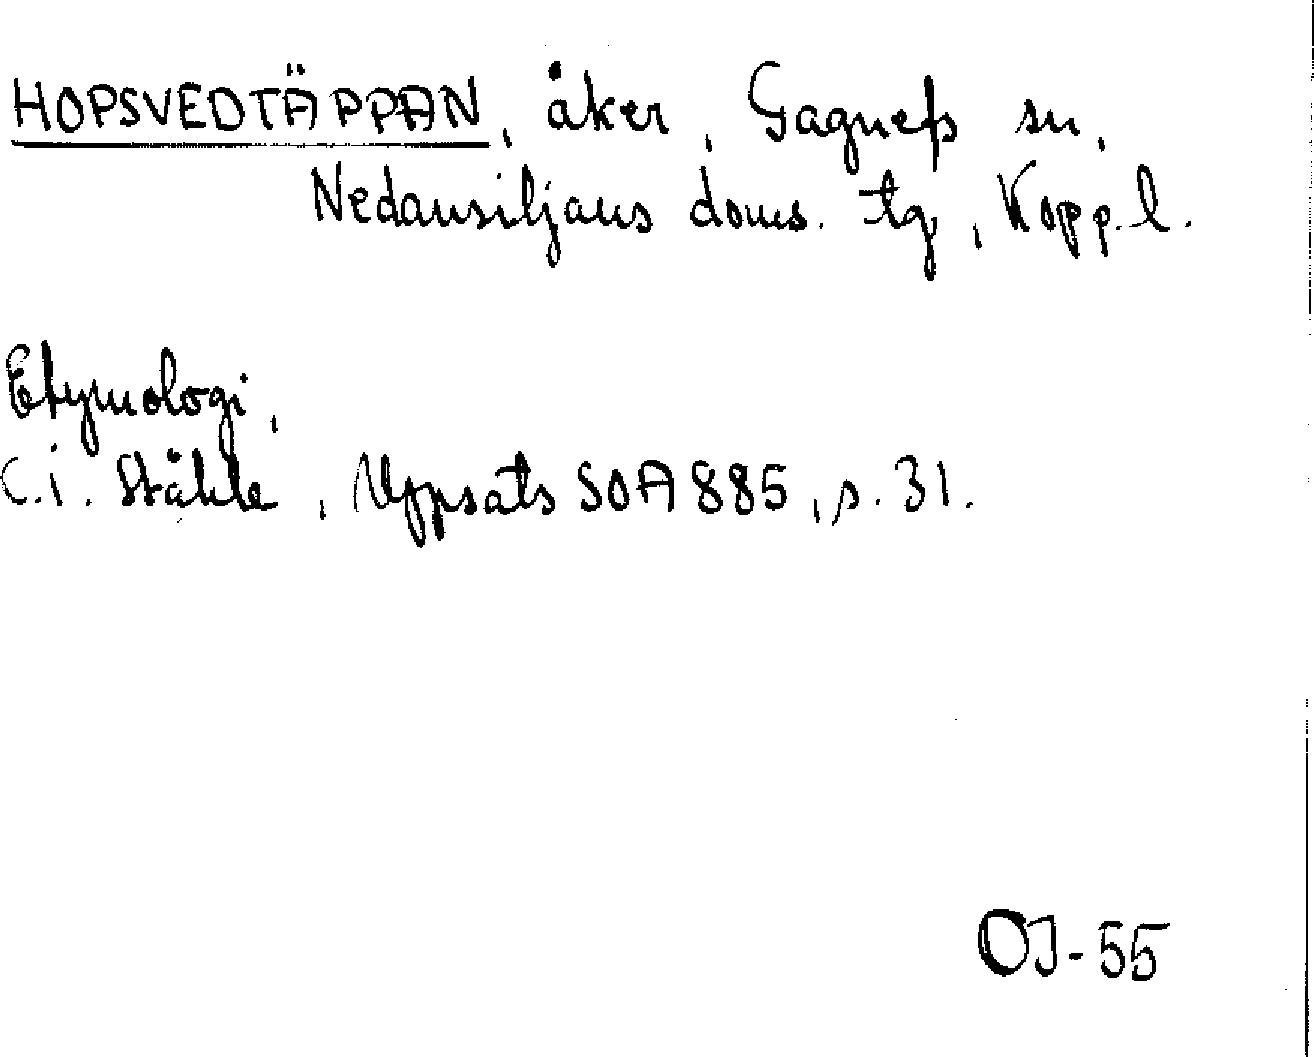 HOPSVEDTÄPPAN, åker, Gagnefs sn,
Nedansiljans doms. tg, Kopp. l.
Etymologi,
C.i. Ståhle, Uppsats SOA 885, s. 31.
OJ-55